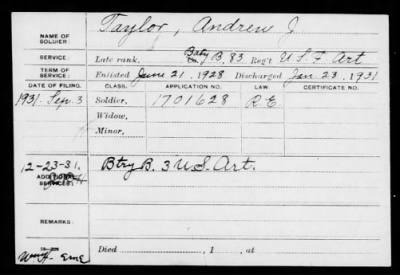 NAME OF SOLDIER: Taylor, Andrew J.
SERVICE: Late rank, Baty B. 83, Reg't U S F Art
TERM OF SERVICE: Enlisted June 21, 1928 Discharged Jan 23, 1931
DATE OF FILING. CLASS. APPLICATION NO. LAW. CERTIFICATE NO.
1931. Sep. 3 Soldier. 1701628 R E
Widow,
Minor,
12-23-31. Btry B. 3 U.S. Art.
ADDITIONAL SERVICES:
REMARKS:
Died , 1 , at